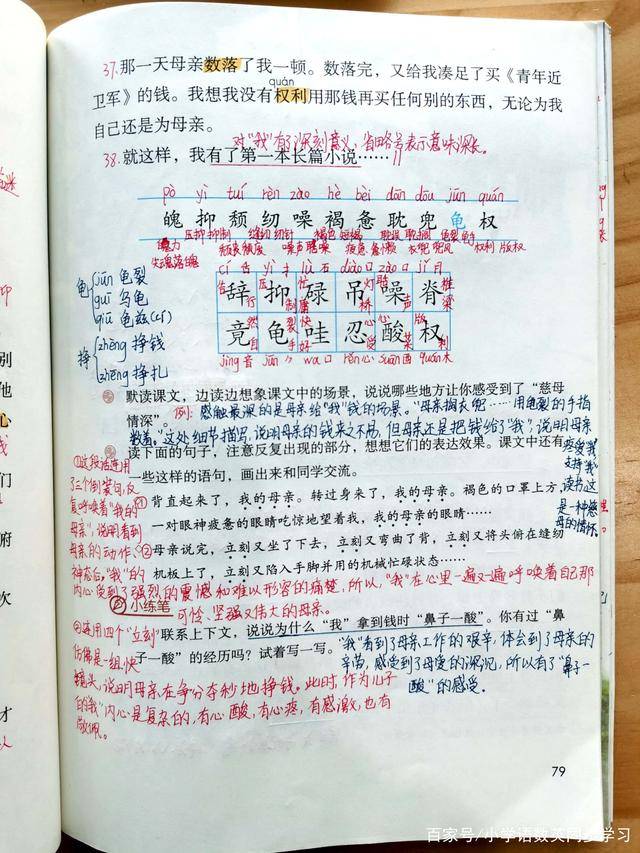 37.那一天母亲数落了我一顿。数落完，又给我凑足了买《青年近
quán
卫军》的钱。我想我没有权利用那钱再买任何别的东西，无论为我
自己还是为母亲。
对"我"有了深刻意义，省略号表示意味深长。
38.就这样，我有了第一本长篇小说……
pò yì tuí rèn zào hè bèi dān dōu jūn quán
魄 抑 颓 纫 噪 褐 惫 耽 兜 龟 权
压抑 抑制 缝纫 纫针 褐色 短褐 耽误 耽搁 龟裂 龟手
魄力 颓丧 颓废 噪声 聒噪 疲惫 惫懒 衣兜 兜风 权利 版权
失魂落魄
cí yì lù diào zào jǐ
辞 抑 碌 吊 噪 脊
竟 龟 哇 忍 酸 权
jìng 音 jūn wa 口 rěn 心 suān 酉 quán 木
龟 jūn 龟裂
guī 乌龟
qiū 龟兹(cí)
挣 zhèng 挣钱
zhēng 挣扎
默读课文，边读边想象课文中的场景，说说哪些地方让你感受到了“慈母
情深”。
例：感触最深的是母亲给"我"钱的场景。"母亲掏衣兜……用龟裂的手指
数着。"这处细节描写，说明母亲的钱来之不易，但母亲还是把钱给了"我"，说明母亲
疼爱我，
支持"我"
读书，这
是一种慈
母的情怀。
读下面的句子，注意反复出现的部分，想想它们的表达效果。课文中还有
一些这样的语句，画出来和同学交流。
①背直起来了，我的母亲。转过身来了，我的母亲。褐色的口罩上方，
一对眼神疲惫的眼睛吃惊地望着我，我的母亲的眼睛……
②母亲说完，立刻又坐了下去，立刻又弯曲了背，立刻又将头俯在缝纫
机板上了，立刻又陷入手脚并用的机械忙碌状态……
①这段话连用
了三个倒装句，反
复呼唤着"我的
母亲"，说明看到
母亲的动作、
神态后，"我"的
内心受到了强烈的震撼和难以形容的痛楚，所以，"我"在心里一遍又一遍呼唤着自己那
可怜、坚强又伟大的母亲。
小练笔
联系上下文，说说为什么“我”拿到钱时“鼻子一酸”。你有过“鼻
子一酸”的经历吗？试着写一写。
"我"看到了母亲工作的艰辛，体会到了母亲的
辛苦，感受到了母爱的深沉，所以有了"鼻子一
酸"的感受。
②连用四个"立刻"
仿佛是一组快
镜头，说明母亲在争分夺秒地挣钱。此时，作为儿子
的"我"内心是复杂的，有心酸，有心疼，有感激，也有
敬佩。
79
百家号/小学语数英同步学习